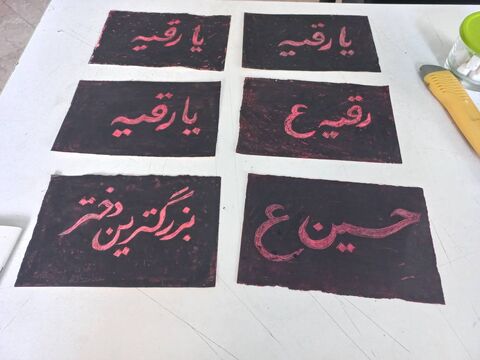 یا رقیه
یا رقیه
رقیه ع
یا رقیه
حسین ع
بزرگترین دختر